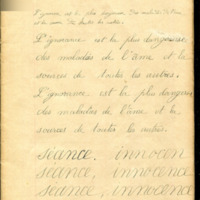 L'ignorance est la plus dangereuse des maladies de l'âme
et la source de toutes les autres.
L'ignorance est la plus dangereuse
des maladies de l'âme et la
source de toutes les autres.
L'ignorance est la plus dangereu
des maladies de l'âme et la
source de toutes les autres.
séance, innocen
séance, innocence
séance, innocenc